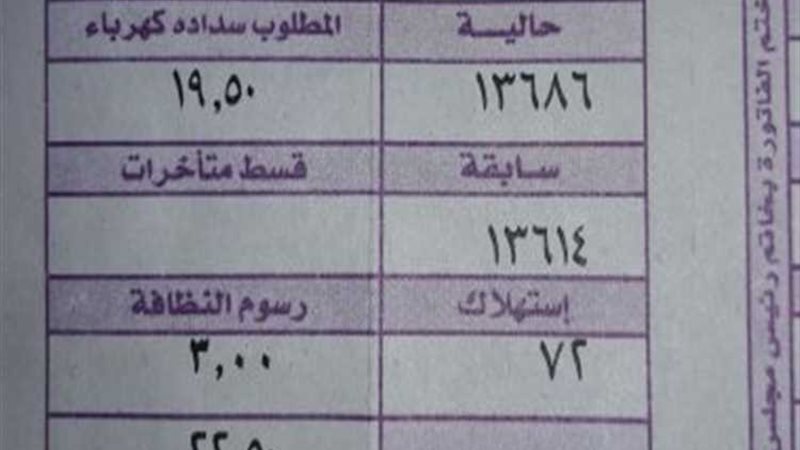 حالية المطلوب سداده كهرباء
١٣٦٨٦ ١٩,٥٠
سابقة قسط متأخرات
١٣٦١٤
إستهلاك رسوم النظافة
٧٢ ٣,٠٠
٢٢,٥٠
ختم الفاتورة بخاتم رئيس مجلس